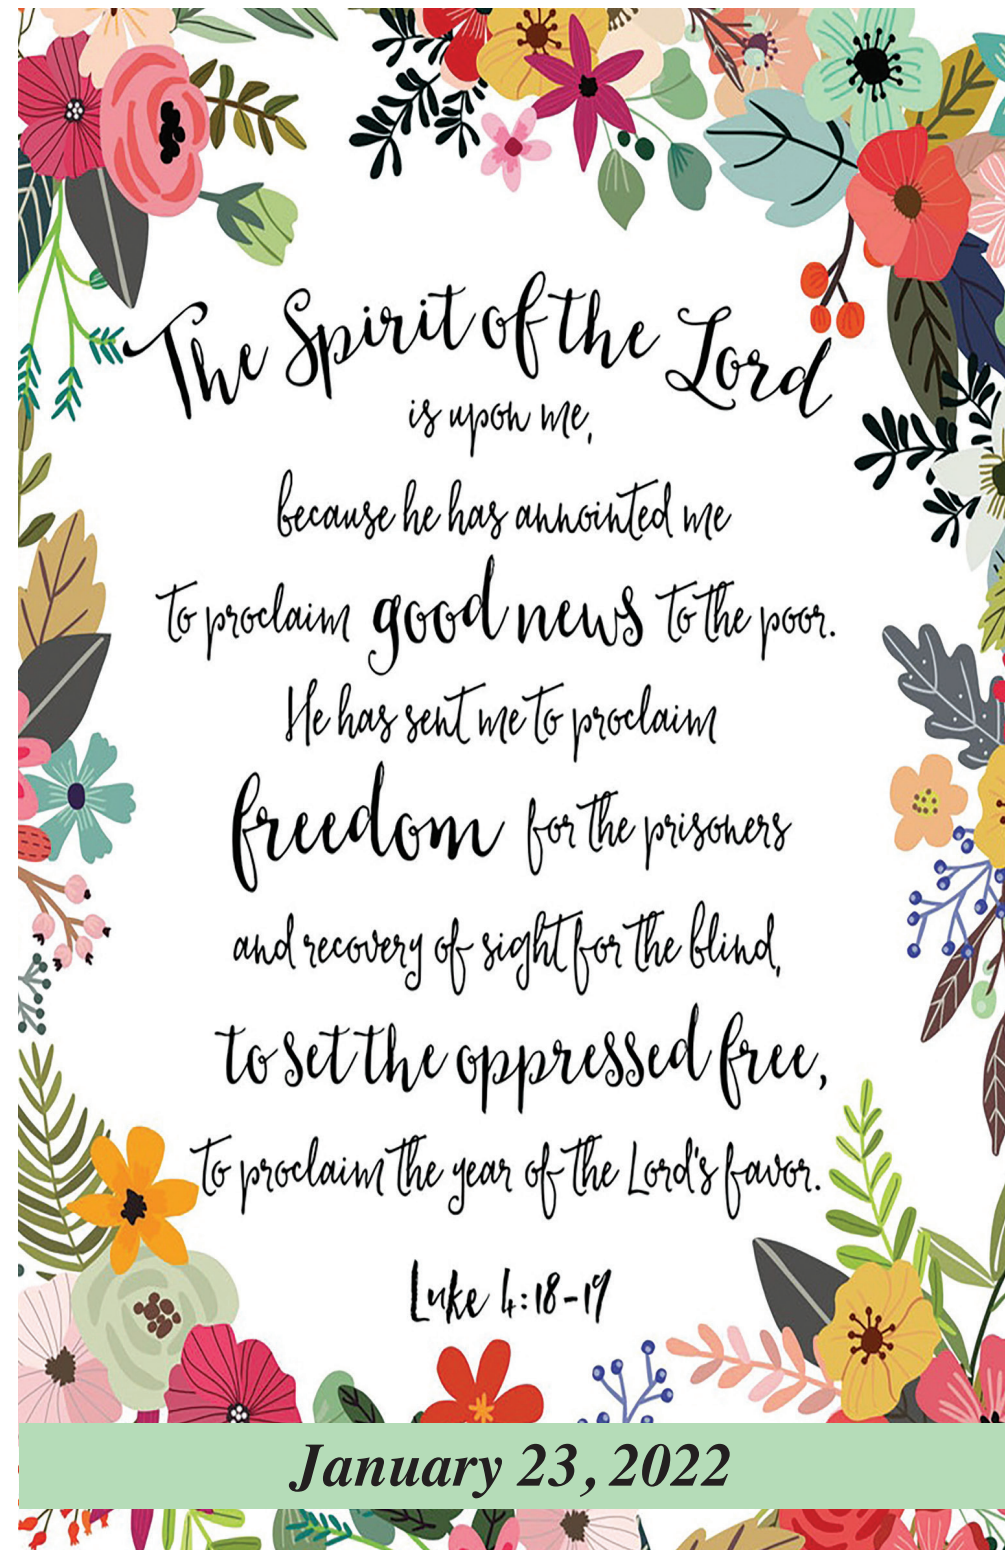 The Spirit of the Lord
is upon me,
because he has annointed me
to proclaim good news to the poor.
He has sent me to proclaim
freedom for the prisoners
and recovery of sight for the blind,
to set the oppressed free,
to proclaim the year of the Lord's favor.
Luke 4:18-19
January 23, 2022